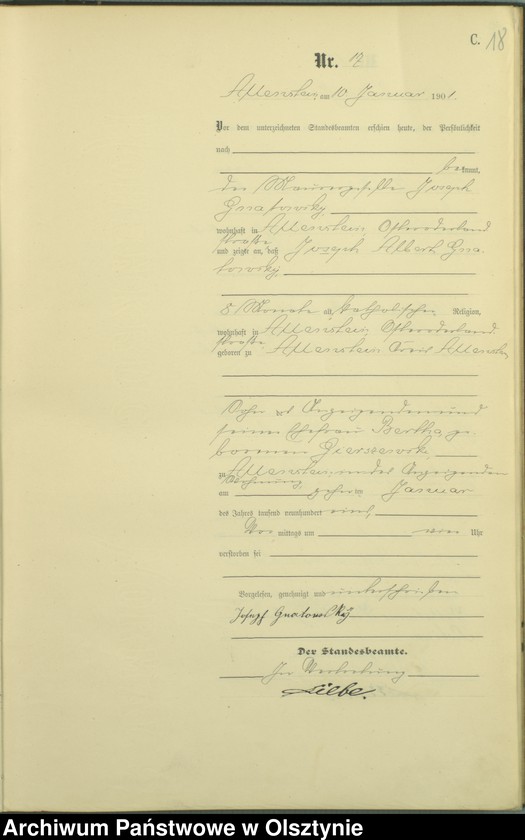 C. 18
Nr. 17
Allenstein, am 10. Januar 1901.
Vor dem unterzeichneten Standesbeamten erschien heute, der Persönlichkeit
nach
bekannt,
der Maurergeselle Joseph
Gnatowsky,
wohnhaft in Allenstein, Osteroderland
straße
und zeigte an, daß Joseph Albert Gna
towsky,
8 Monate alt, katholischer Religion,
wohnhaft in Allenstein, Osteroderland
straße
geboren zu Allenstein Kreis Allenstein
Sohn des Anzeigenden und
seiner Ehefrau Bertha, ge
borenen
zu Allenstein, in des Anzeigenden
Wohnung,
am zehnten Januar
des Jahres tausend neunhundert eins
Vor mittags um Uhr
verstorben sei
Vorgelesen, genehmigt und unterschrieben
Joseph Gnatowsky
Der Standesbeamte.
In Vertretung
Archiwum Państwowe w Olsztynie